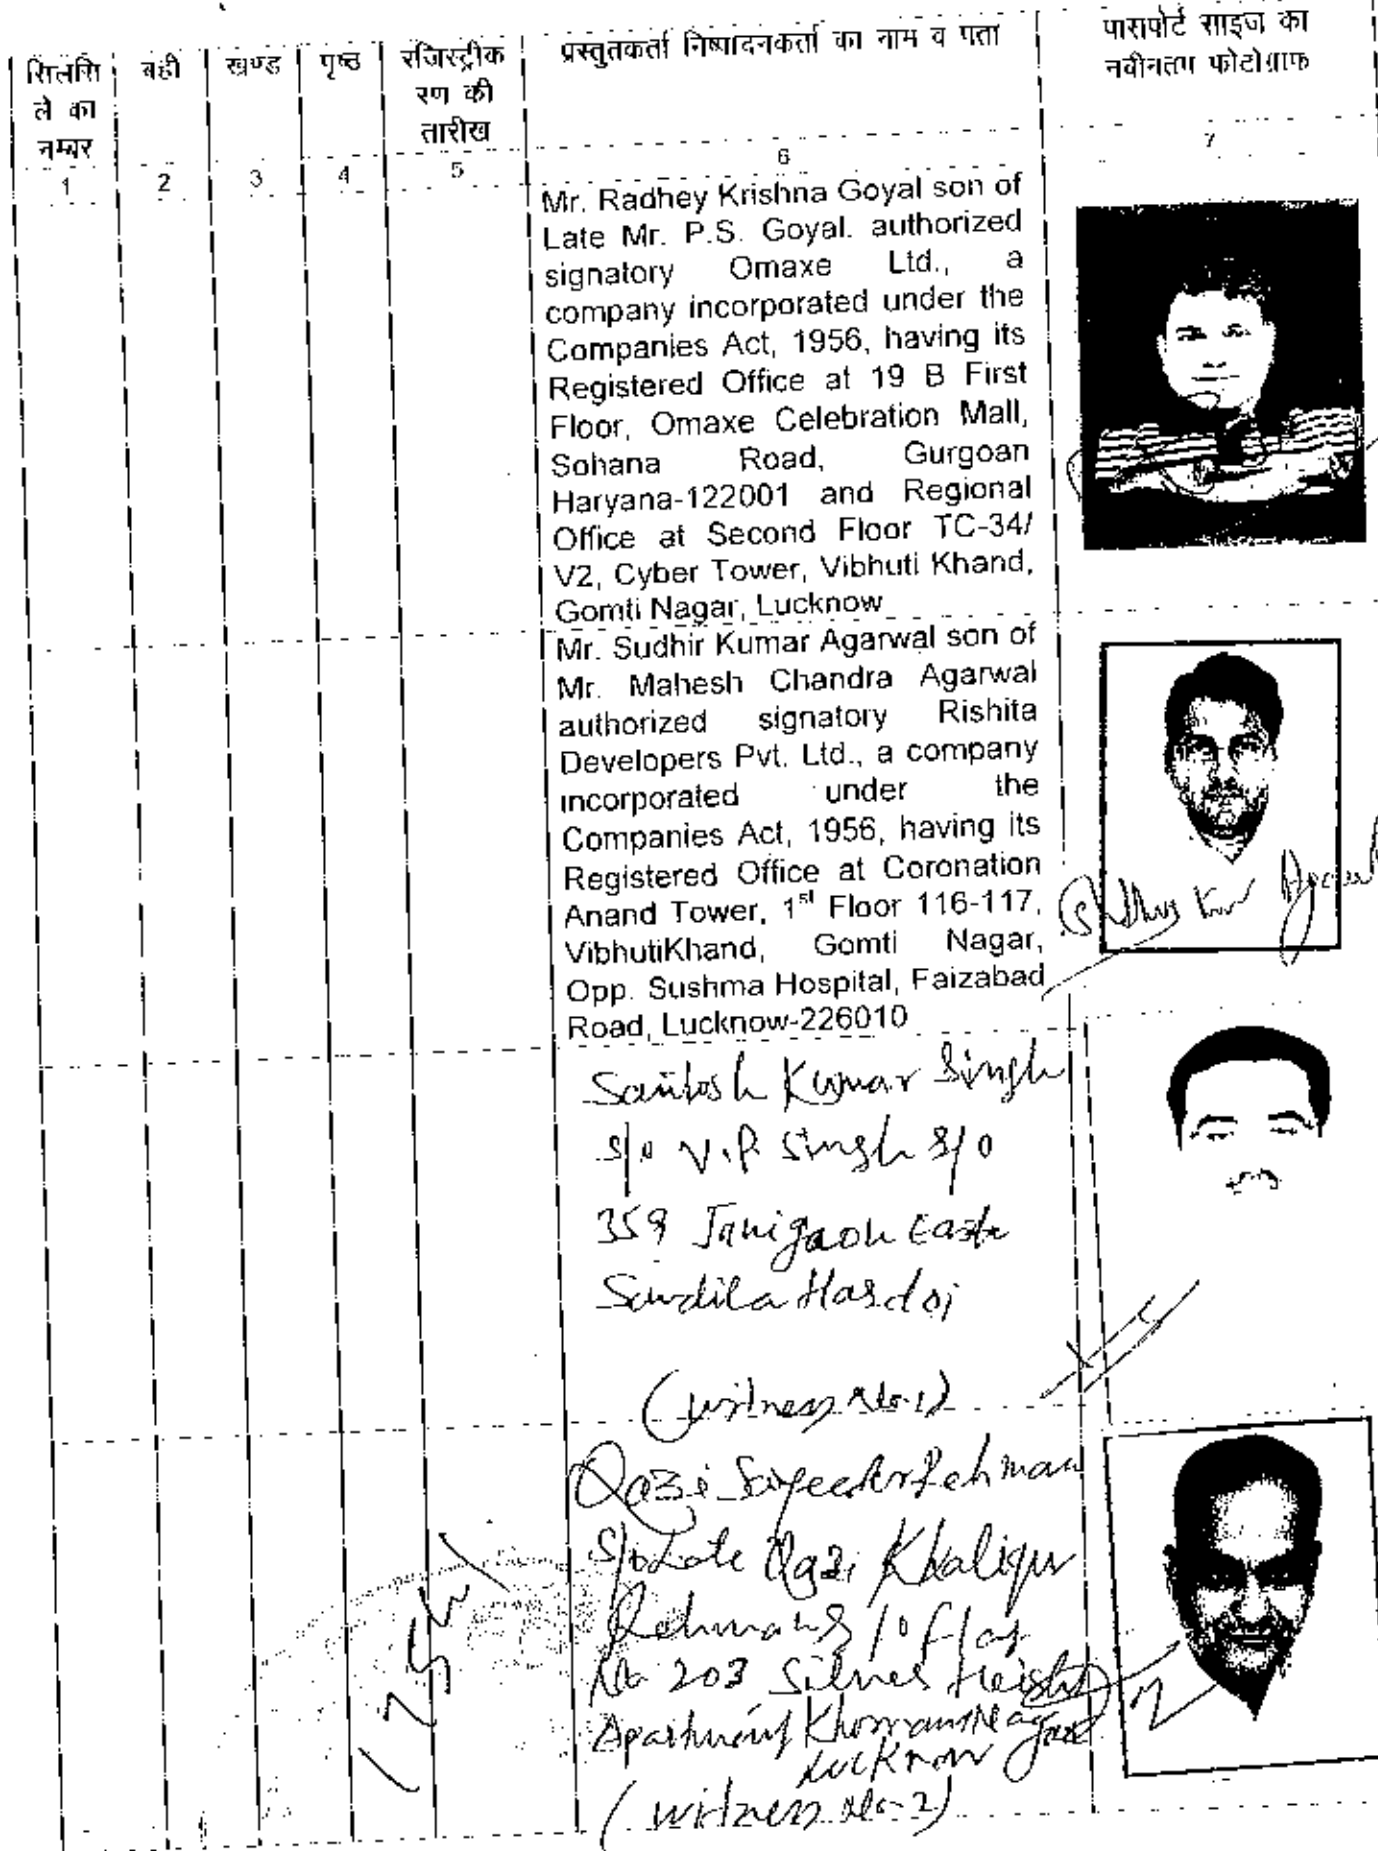 सिलसि
ले का
नम्बर
बही
खण्ड
पृष्ठ
रजिस्ट्रीक
रण की
तारीख
प्रस्तुतकर्ता निष्पादनकर्ता का नाम व पता
पासपोर्ट साइज का
नवीनतम फोटोग्राफ
1 2 3 4 5 6 7
Mr. Radhey Krishna Goyal son of
Late Mr. P.S. Goyal. authorized
signatory Omaxe Ltd., a
company incorporated under the
Companies Act, 1956, having its
Registered Office at 19 B First
Floor, Omaxe Celebration Mall,
Sohana Road, Gurgoan
Haryana-122001 and Regional
Office at Second Floor TC-34/
V2, Cyber Tower, Vibhuti Khand,
Gomti Nagar, Lucknow
Mr. Sudhir Kumar Agarwal son of
Mr. Mahesh Chandra Agarwal
authorized signatory Rishita
Developers Pvt. Ltd., a company
incorporated under the
Companies Act, 1956, having its
Registered Office at Coronation
Anand Tower, 1st Floor 116-117,
VibhutiKhand, Gomti Nagar,
Opp. Sushma Hospital, Faizabad
Road, Lucknow-226010
Santosh Kumar Singh
S/o V.P Singh
359 East
Sandila Hardoi
(witness No-1)
Qazi Sayeedur Rehman
S/o Late Qazi Khaliqur
Rehman
No 203 Silver Height
Apartment
Lucknow
(witness No-2)